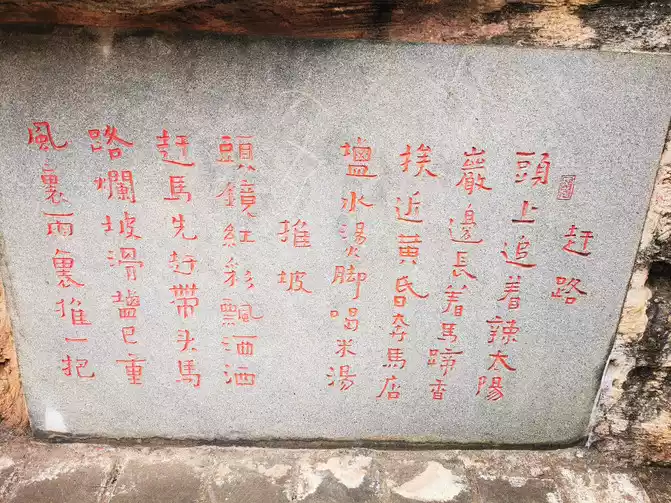 赶路
頭上追着辣太陽
巖邊長着馬蹄香
挨近黄昏奔馬店
鹽水燙脚喝米湯
推坡
頭鏡紅彩飄洒洒
赶馬先赶帶头馬
路爛坡滑鹽巴重
風裏雨裏推一把